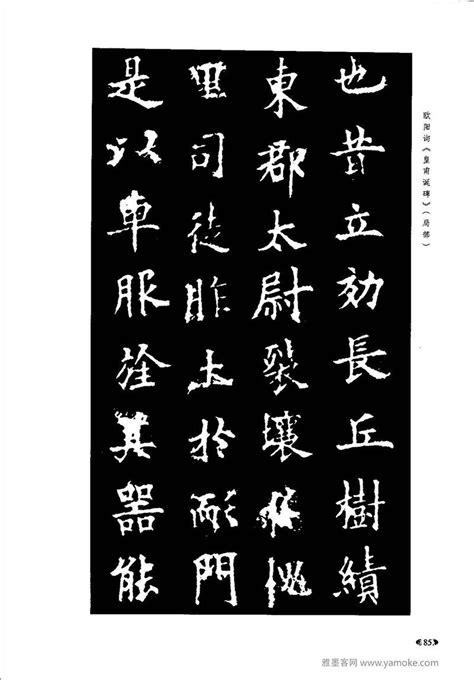 欧阳询《皇甫诞碑》（局部）
也昔立効長丘樹績
東郡太尉裂壤於槐
里司徒胙土於耏門
是以車服旌其器能
85
雅墨客网 www.yamoke.com